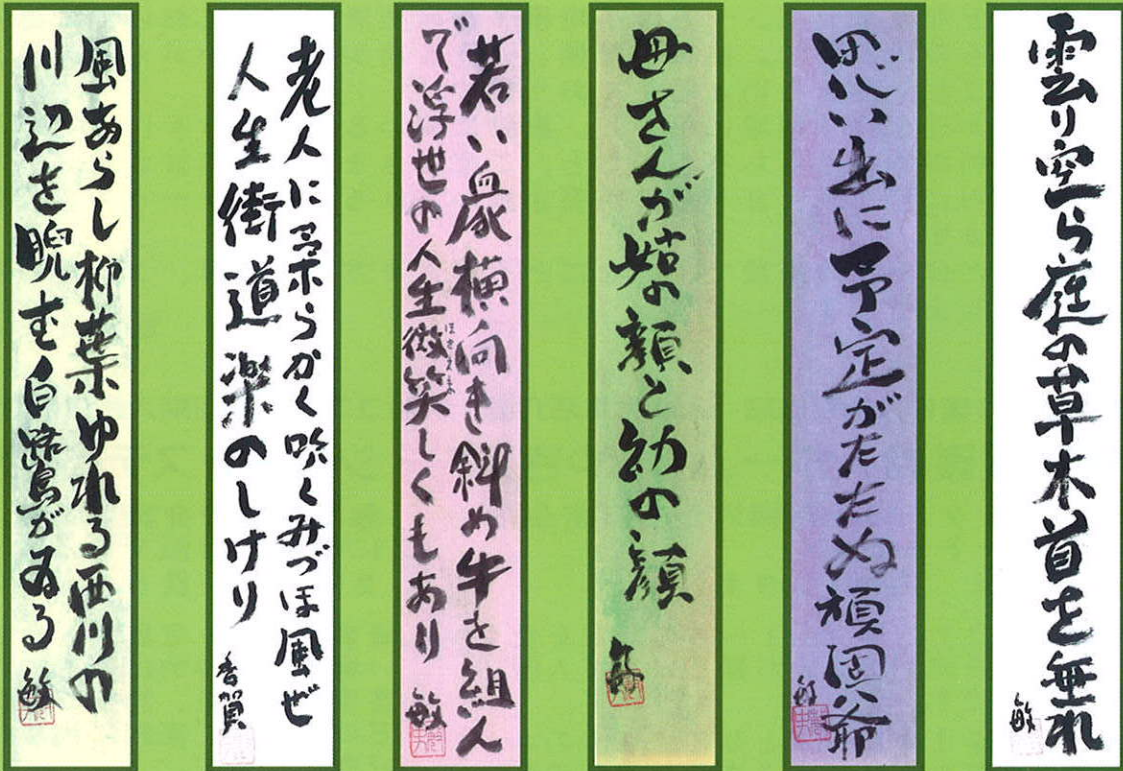 雲り空ら庭の草木首を無れ
敏
思い出に予定がたたぬ頑固爺
敏
母さんが嬉の顔と幼の顔
敏
若い歳横向き斜め牛を組ん
で浮世の人生微笑しくもあり
ほほえま
敏
老人に柔らかく吹くみづほ風ぜ
人生街道楽のしけり
香賀
風あらし柳葉ゆれる西川の
川辺を睨む白鷺がゐる
敏